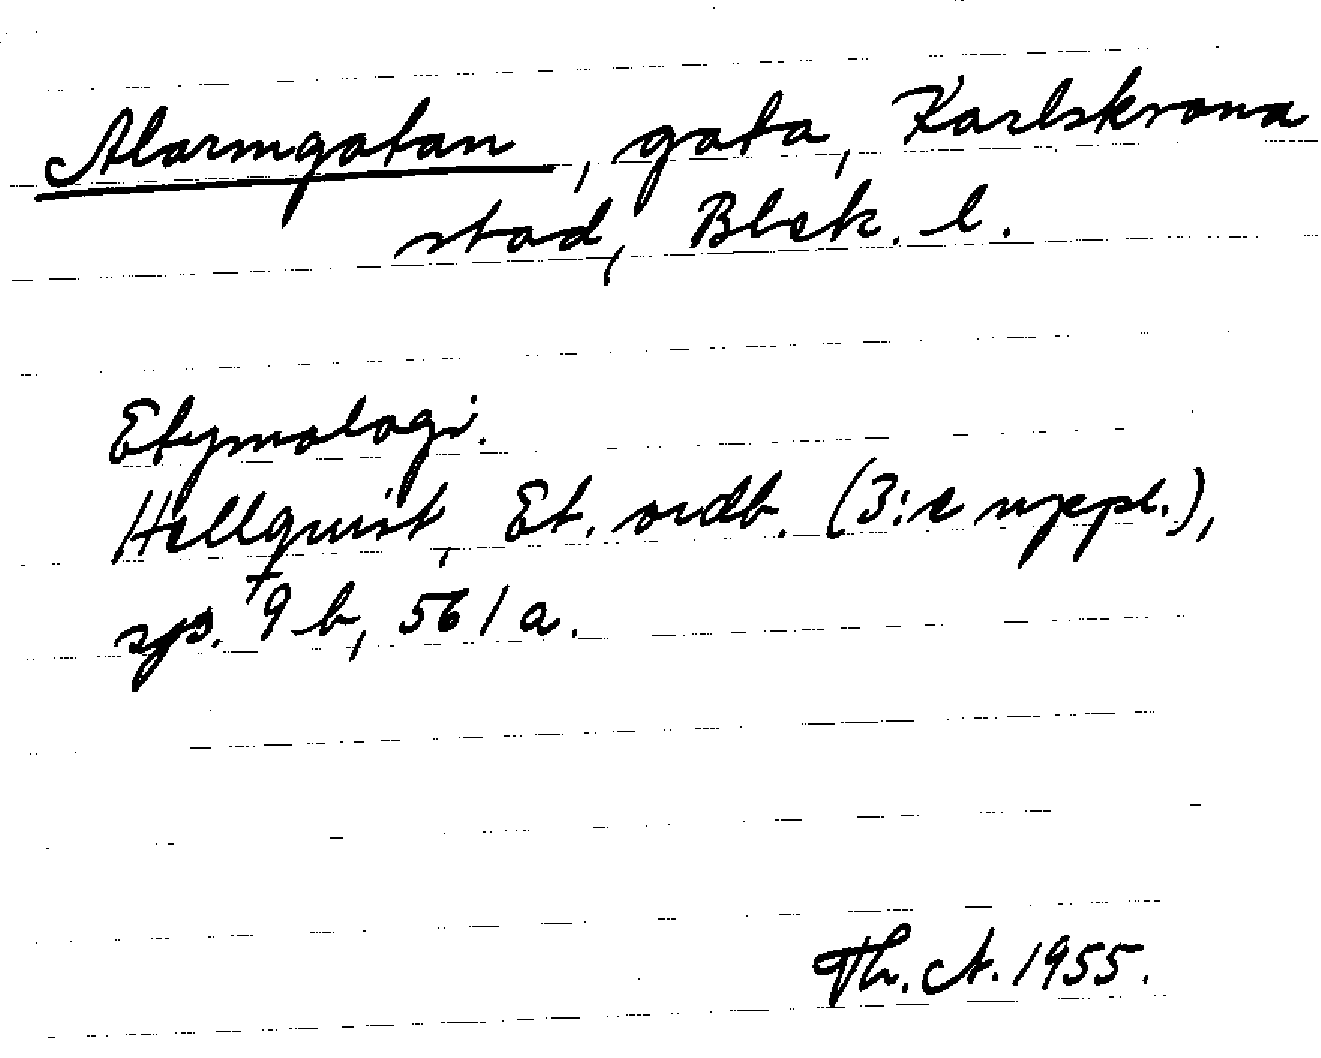 Alarmgatan, gata, Karlskrona
stad, Blek. l.
Etymologi.
Hellquist, Et. ordb. (3:e uppl.),
sp. 9 b, 561 a.
Th. A. 1955.